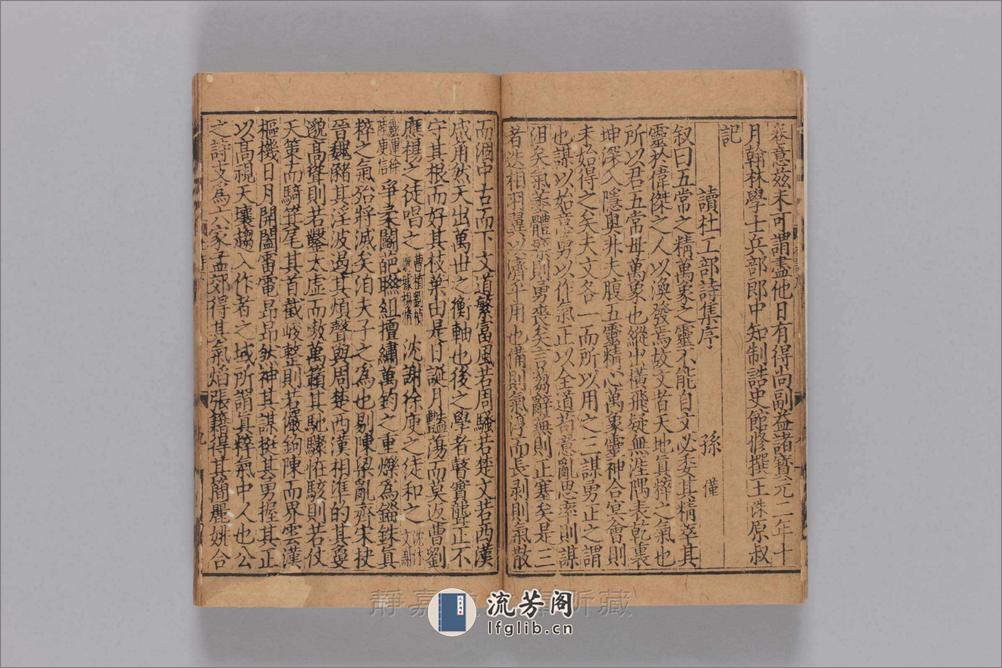 裘意茲未可謂盡他日有得尚副益諸寶元二年十
月翰林學士兵部郎中知制誥史館修撰王洙原叔
記
讀杜工部詩集序 孫僅
叙曰五常之精萬象之靈不能自文必委其精萃其
靈於偉傑之人以渙發焉故文者天地真粹之氣也
所以君五常母萬象也縱出橫飛疑無涯隅表乾裏
坤深入隱奧非夫腹五靈精心萬象靈神合冥會則
未始得之矣夫文各一而所以用之三謀勇正之謂
也謀以始意勇以作氣正以全道苟意亂思率則謀
沮矣氣萎體瘵則勇喪矣言蒭辭蕪則正塞矣是三
者迭相羽翼以濟乎用也備則氣淳而長剥則氣散
而涸中古而下文道繁富風若周騷若楚文若西漢
咸角然天出萬世之衡軸也後之學者瞽實聾正不
守其根而好其枝葉由是日誕月艷蕩而莫返曹劉
應楊之徒唱之 沈謝徐庾之徒和之
爭柔鬭葩聯組擅繡萬鈞之重爍為錙銖真
粹之氣殆將滅矣洎夫子之為也剔陳梁亂齊宋抉
晉魏瀦其淫波遏其煩聲與周楚西漢相準的其敻
邈高聳則若鑿太虛而噭萬籟其馳驟怪駭則若仗
天策而騎箕尾其首截峻整則若儼鉤陳而界雲漢
樞機日月開闔雷電昂昂然神其謀挺其勇握其正
以高視天壤趨入作者之域所謂真粹氣中人也公
之詩支為六家孟郊得其氣焰張籍得其簡麗姚合
九
靜嘉 所藏
流芳阁
lfglib.cn